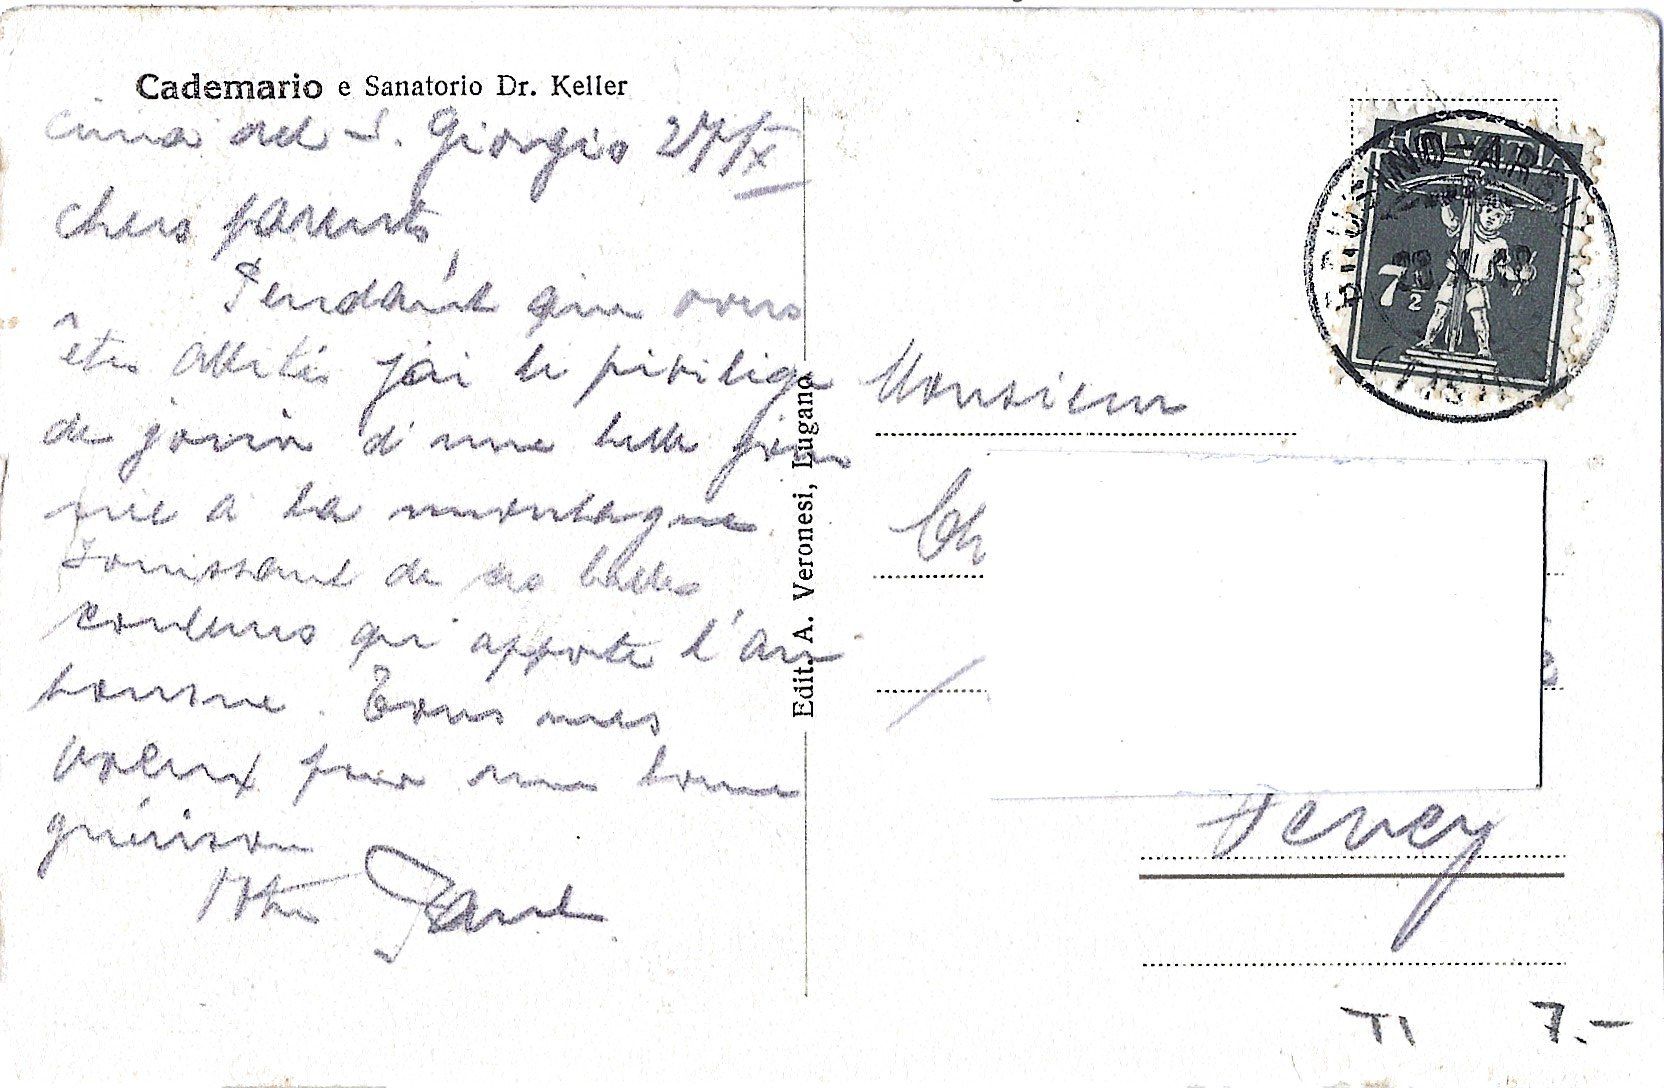 Cademario e Sanatorio Dr. Keller
cima del S. Giorgio 27/IX
chers parents,
Pendant que vous
êtes alités j'ai le privilige
de jouir d'une belle jour
née à la montagne
Jouissant de ses belles
couleurs qui apporte l'au
tomne. Tous mes
voeux pour une bonne
guérison
Votre Paul
Edit. A. Veronesi, Lugano
HELVETIA
7 1/2
Monsieur
Ch
Vevey
TI 7.-